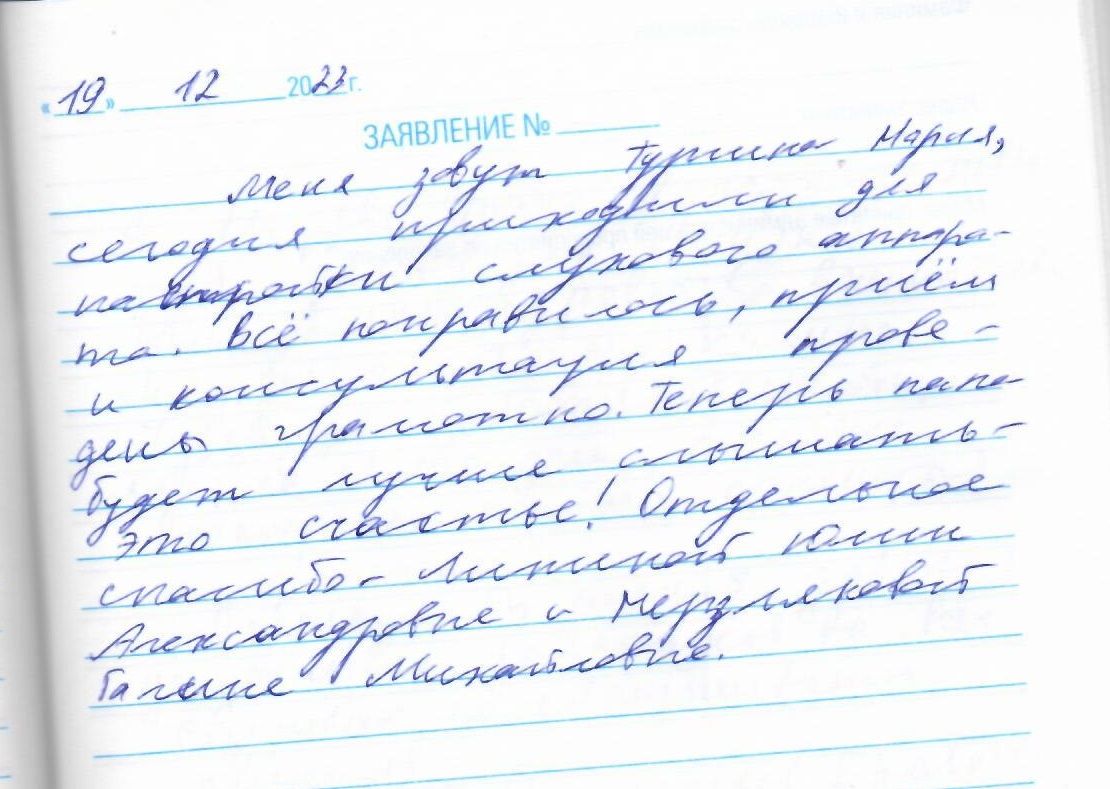 «19» 12 2023 г.
ЗАЯВЛЕНИЕ №
Меня зовут Мария,
сегодня приходили для
настройки слухового аппара-
та. Всё понравилось, приём
и консультация прове-
дены грамотно. Теперь папа
будет лучше слышать-
это счастье! Отдельное
спасибо - Юлии
Александровне и Мерзляковой
Галине Михайловне.